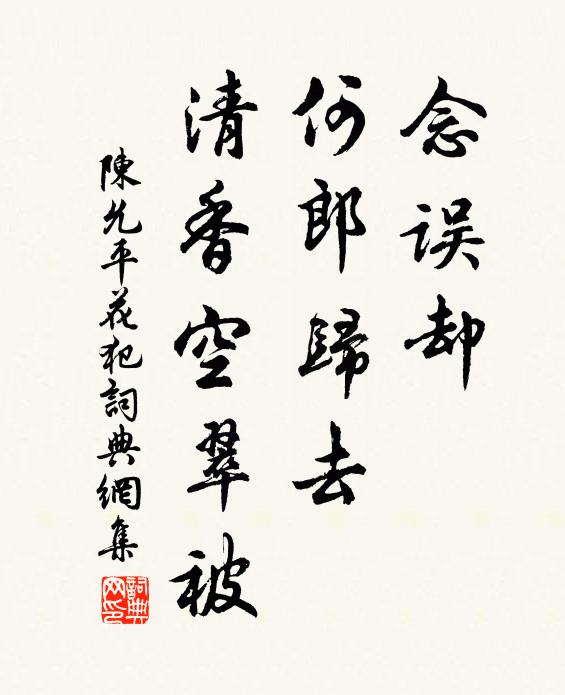 念误却
何郎歸去
清香空翠被
陳允平花犯詞典網集
詞典网印